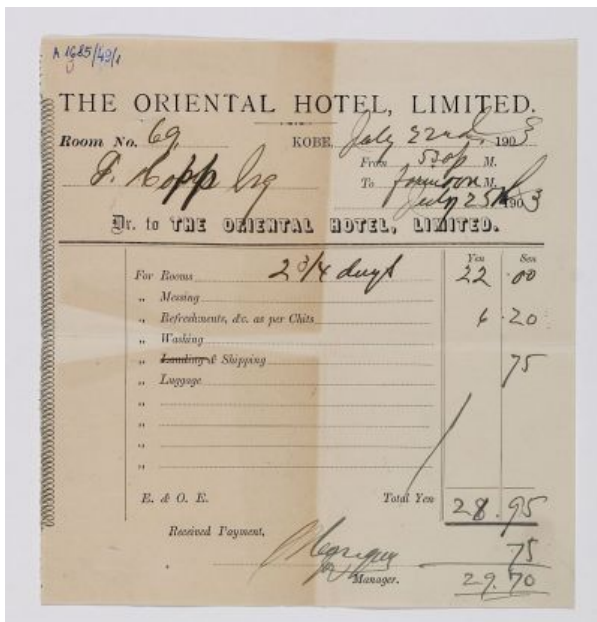 A 1685/49/1
THE ORIENTAL HOTEL, LIMITED.
Room No. 69. KOBE, July 22nd, 1903
From 530 p M.
F. Hopp Esq To forenoon M.
July 25th 1903
Dr. to THE ORIENTAL HOTEL, LIMITED.
Yen Sen
For Rooms 2 3/4 days 22 .00
„ Messing
„ Refreshments, &c. as per Chits 6 .20
„ Washing
„ Landing & Shipping 75
„ Luggage
„
„
„
„
„
E. & O. E. Total Yen 28.95
Received Payment,
75
Manager. 29.70